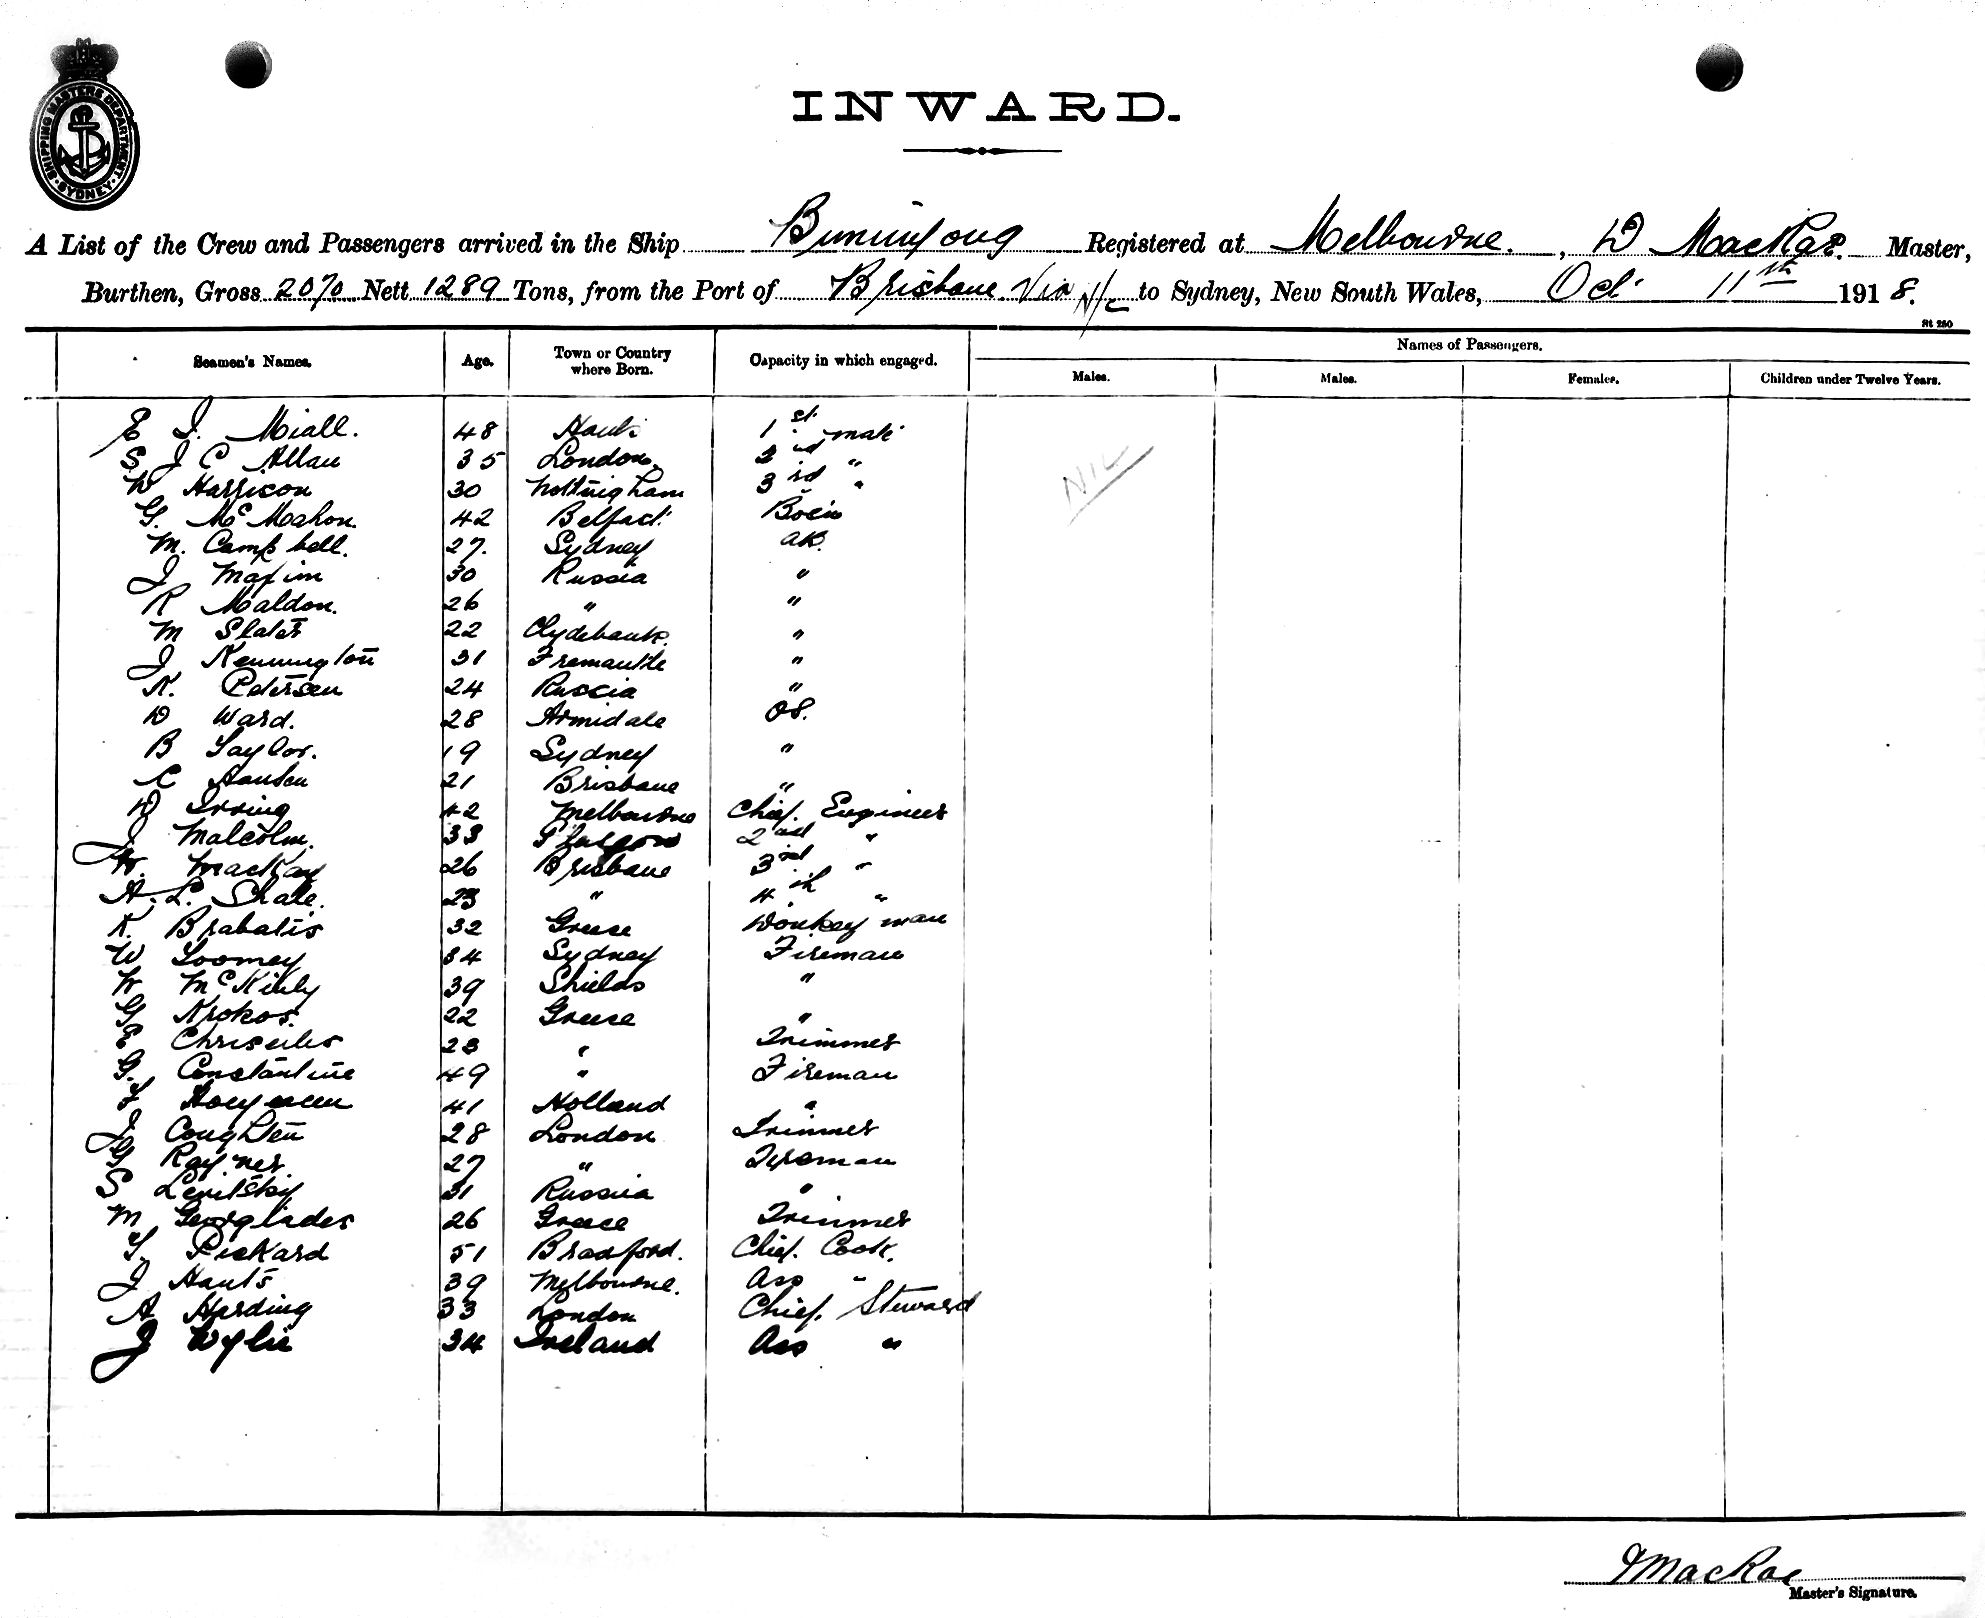 SHIPPING MASTERS DEPARTMENT SYDNEY
INWARD.
A List of the Crew and Passengers arrived in the Ship Buninyong Registered at Melbourne. , D MacRae. Master,
Burthen, Gross 2070 Nett 1289 Tons, from the Port of Brisbane Via N/C to Sydney, New South Wales, Oct 11th 1918.
St 250
Seamen's Names. Age. Town or Country where Born. Capacity in which engaged. Names of Passengers.
Males. Males. Females. Children under Twelve Years.
E J. Miall. 48 Hants 1st mate
S J C Allan 35 London 2nd "
D Harrison 30 Nottingham 3rd "
NIL
G. McMahon. 42 Belfast Bosin
M. Campbell. 27. Sydney AB.
J Maxim 30 Russia "
R Maldon. 26 " "
M Slater 22 Clydebank. "
J Kennington 31 Fremantle "
K. Petersen 24 Russia "
D Ward. 28 Armidale OS.
B Taylor. 19 Sydney "
C Hansen 21 Brisbane "
D Irving 42 Melbourne Chief. Engineer
J Malcolm. 33 Glasgow 2nd "
W. MacKay 26 Brisbane 3rd "
A. L. Shale. 23 " 4th "
K. Brabatis 32 Greese Donkey man
W Toomey 34 Sydney Fireman
W McKinly 39 Shields "
G Krokos. 22 Greese "
E 23 " Trimmer
G. Constantine 49 " Fireman
41 Holland "
J Coughten 28 London Trimmer
G Rayner 27 " Fireman
S Levitsky 31 Russia "
M Georgiades 26 Greese Trimmer
T. Pickard 51 Bradford. Chief. Cook.
J Hants 39 Melbourne. Ass "
A Harding 33 London Chief. Steward
J Wylie 34 Ireland Ass "
MacRae
Master's Signature.